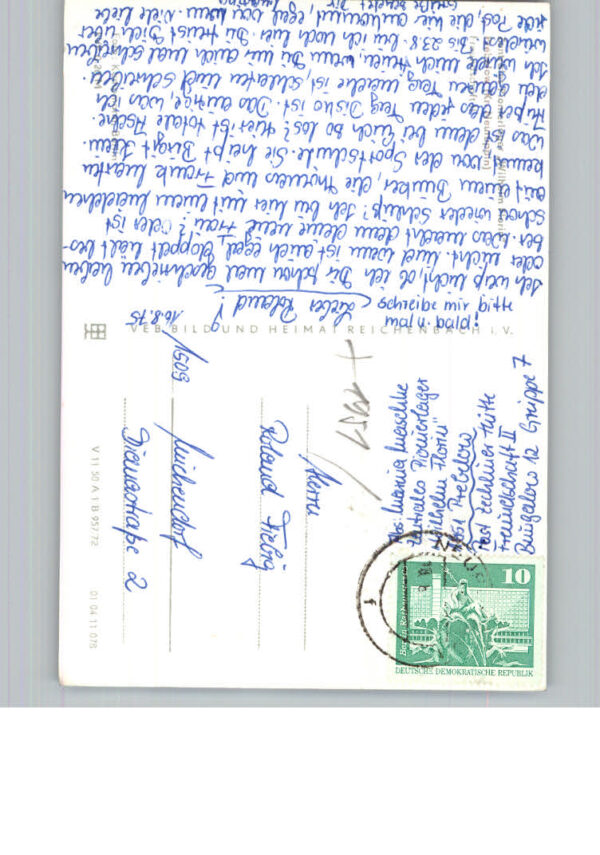 16.8.75
Lieber Roland!
Bitte schreibe mir mal n. bald!
Ich weiß nicht, ob ich Dir schon mal geschrieben haben
oder nicht. Und wenn ist auch egal doppelt hält bes-
ser. Was macht denn deine neue Frau? Oder ist
schon wieder Schluß? Ich bin hier mit einem Mädchen
aus einem Bunker, die Thomas und Frank
kennt von der Sportschule. Sie heißt Birgit
Was ist denn bei Euch so los? Hier ist totale Asche.
Außer das jeden Tag Disko ist. Das einzige, was ich
den ganzen Tag mache ist, schlafen und schreiben.
Ich würde mich freuen, wenn Du mir auch mal schreiben
würdest. Bis 23.8. bin ich noch hier. Du freust Dich über
jede Post, die hier ankommt, egal von wem. Viele liebe
Grüße sendet Dir
VEB BILD UND HEIMAT REICHENBACH i. V.
V 11 50 A 1 B 957/72
01 04 11 078
Abs:
Zentrales Pionierlager
"Wilhelm Florin"
Prebelow
Post Zechliner Hütte
Freundschaft II
Bungalow 12 Gruppe 7
Herrn
Roland
1509
Michendorf
Dianastraße 2
10
DEUTSCHE DEMOKRATISCHE REPUBLIK